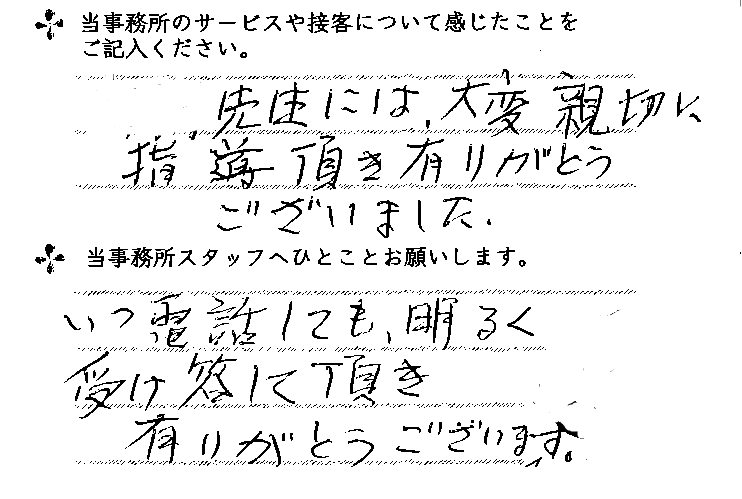 当事務所のサービスや接客について感じたことを
ご記入ください。
先生には、大変親切に
指導頂き有りがとう
ございました.
当事務所スタッフへひとことお願いします。
いつ電話しても、明るく
受け答して頂き
有りがとうございます。